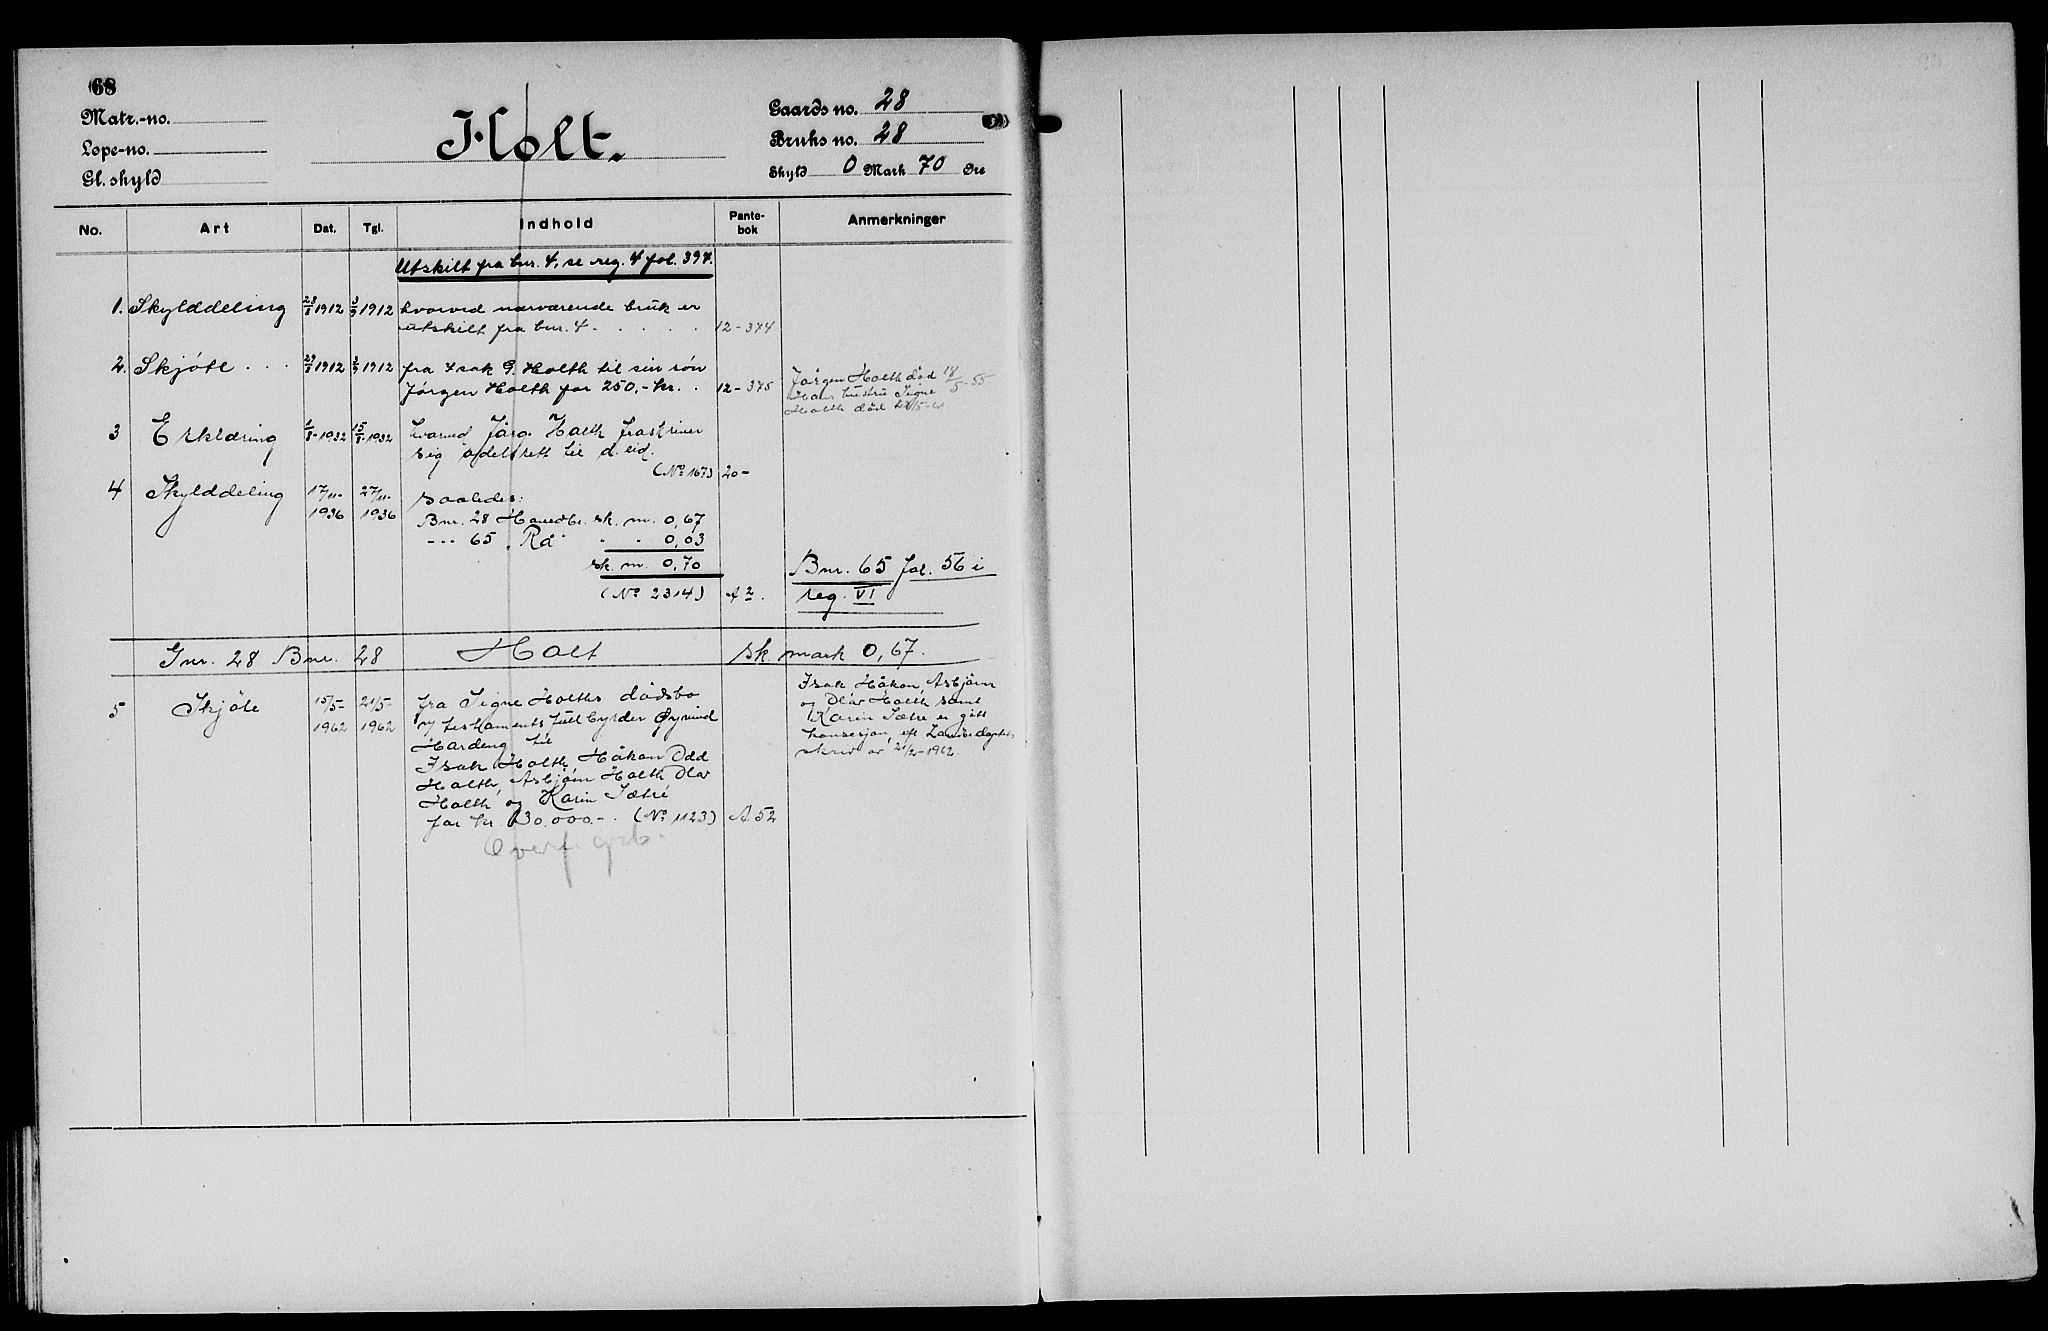 68
Matr.-no.
Løpe-no.
Gl. skyld
Holt.
Gaards no. 28
Bruks no. 28
Skyld 0 Mark 70 Øre
No. Art Dat. Tgl. Indhold Pante-bok Anmerkninger
Utskilt fra bnr. 4, se reg. 4 fol. 394.
1. Skylddeling 28/8 1912 3/9 1912 hvorved nærværende bruk er
utskilt fra bnr. 4 . . . . . 12-374
2. Skjøte . . . 29/8 1912 3/9 1912 fra Isak G. Holth til sin søn
Jørgen Holth for 250,- kr. . 12-375
Jørgen Holth død 18/5-55
Hans hustru Signe
Holth død
3 Erklæring 1/8-1932 15/8-1932 hvorved Jørg. Holth fraskriver
sig odelsrett til d. eid.
(No 1673) 20-
4 Skylddeling 17/11-1936 27/11-1936 saaledes:
Bnr. 28 Hovedbr. sk. m. 0,67
--- 65 "Rå" " - 0,03
sk. m. 0,70
(No 2314) A 2.
Bnr. 65 fol. 56 i
reg. VI
Gnr. 28 Bnr. 28 Holt sk. mark 0,67.
5 Skjøte 15/5-1962 21/5-1962 fra Signe Holths dødsbo
v/ testamentsfullbyrder Øyvind
Hardeng til
Isak Holth, Håkon Odd
Holth, Asbjørn Holth Olav
Holth, og Karin Sætre
for kr. 130.000.- . (No 1123) A. 52
Isak Håkon, Asbjørn
og Olav Holth, samt
Karin Sætre er gitt
konsesjon, eft. Landbr.deptets
skriv av 21/2-1962.
Overf. grb.